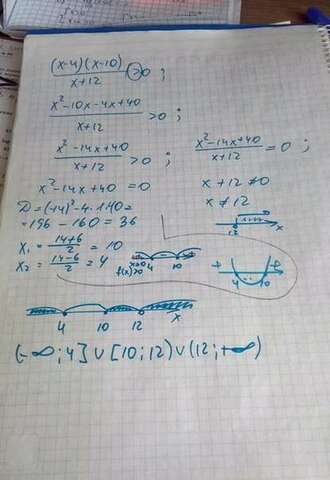 (x-4)(x-10)/x+12 > 0 ;
x²-10x-4x+40/x+12 > 0 ;
x²-14x+40/x+12 > 0 ; x²-14x+40/x+12 = 0 ;
x²-14x+40 = 0 x+12 ≠ 0
D=(-14)²-4·1·40= x ≠ 12
=196-160=36 12 x
x₁ = 14+6/2 = 10
x₂ = 14-6/2 = 4
4 10
f(x)>0
+ - 4 10
4 10 12 x
(-∞;4]∪[10;12)∪(12;+∞)